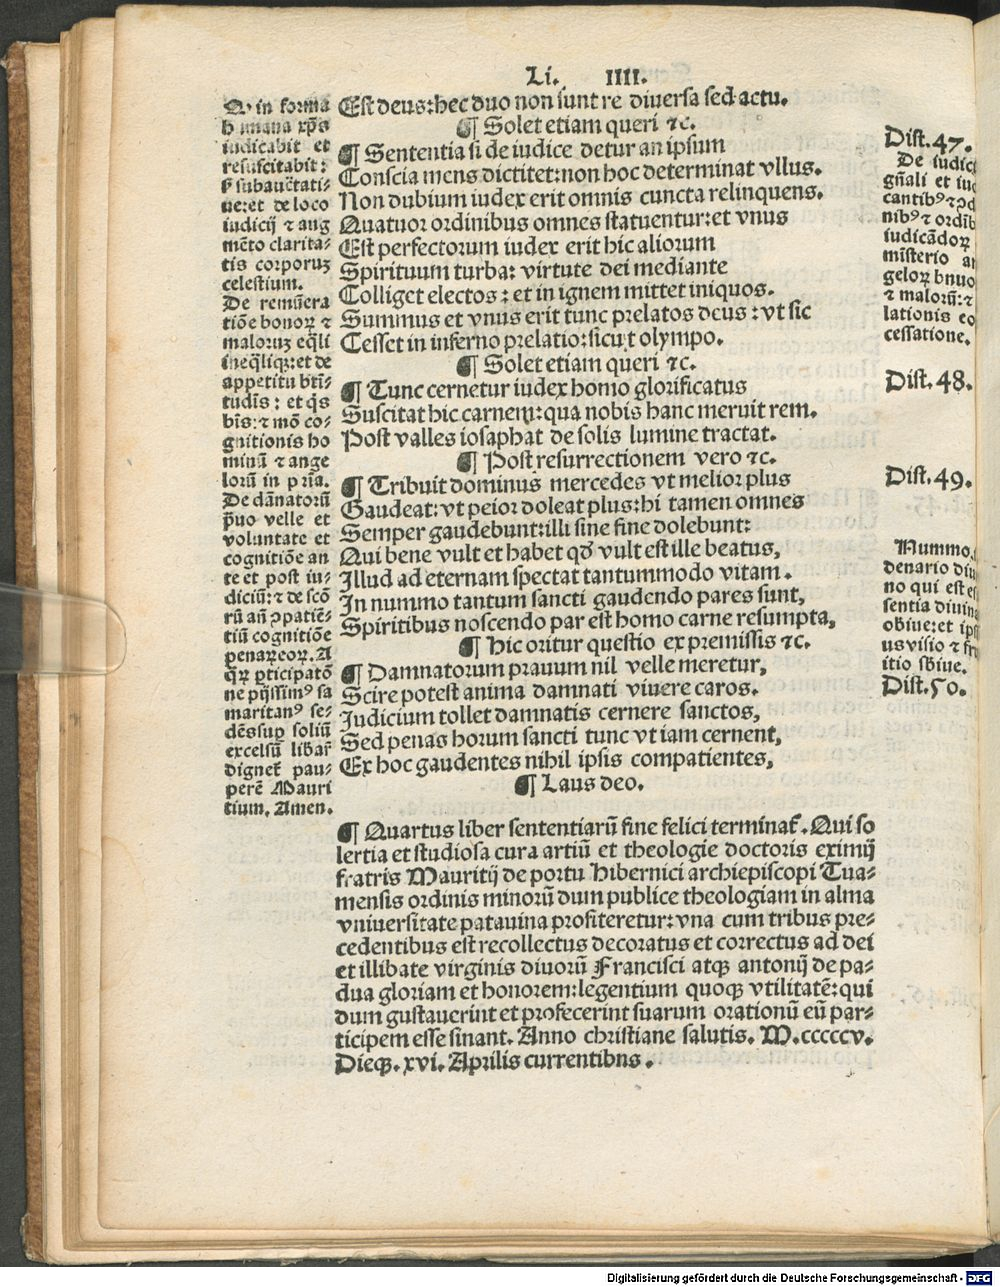 Li. IIII.
Est deus:hec duo non sunt re diversa sed actu.
¶ Solet etiam queri ⁊c.
¶ Sententia si de iudice detur an ipsum
Conscia mens dictitet:non hoc determinat vllus.
Non dubium iudex erit omnis cuncta relinquens.
Quatuor ordinibus omnes statuentur:et vnus
Est perfectorum iudex erit hic aliorum
Spirituum turba: virtute dei mediante
Colliget electos: et in ignem mittet iniquos.
Summus et vnus erit tunc prelatos deus : vt sic
Cesset in inferno prelatio:sicut olympo.
¶ Solet etiam queri ⁊c.
¶ Tunc cernetur iudex homo glorificatus
Suscitat hic carnem:qua nobis hanc meruit rem.
Post valles iosaphat de solis lumine tractat.
¶ Post resurrectionem vero ⁊c.
¶ Tribuit dominus mercedes vt melior plus
Gaudeat: vt peior doleat plus:hi tamen omnes
Semper gaudebunt:illi sine fine dolebunt:
Qui bene vult et habet qď vult est ille beatus,
Illud ad eternam spectat tantummodo vitam.
In nummo tantum sancti gaudendo pares sunt,
Spiritibus noscendo par est homo carne resumpta,
¶ Hic oritur questio ex premissis ⁊c.
¶ Damnatorum prauum nil velle meretur,
Scire potest anima damnati viuere caros.
Iudicium tollet damnatis cernere sanctos,
Sed penas horum sancti tunc vt iam cernent,
Ex hoc gaudentes nihil ipsis compatientes,
¶ Laus deo.
¶ Quartus liber sententiarū fine felici terminat᷑. Qui so
lertia et studiosa cura artiū et theologie doctoris eximij
fratris Mauritij de portu Hibernici archiepiscopi Tua⸗
mensis ordinis minorū dum publice theologiam in alma
vniuersitate patauina profiteretur: vna cum tribus pre⸗
cedentibus est recollectus decoratus et correctus ad dei
et illibate virginis diuorū Francisci atqꝫ antonij de pa⸗
dua gloriam et honorem:legentium quoqꝫ vtilitatē: qui
dum gustauerint et profecerint suarum orationū eū par⸗
ticipem esse sinant. Anno christiane salutis. M.cccccv.
Dieqꝫ. xvi. Aprilis currentibns.
in forma
humana xp̄s
iudicabit et
resuscitabit:
ue:et de loco
iudicij ⁊ aug
mēto clarita⸗
tis corporuꝫ
celestium.
De remūera
tiōe bonoꝝ ⁊
maloruꝫ eq̄li
ineq̄liqꝫ:et de
appetitu btī⸗
tudīs: et q̄s
bīs:⁊ mō co⸗
gnitionis ho
minū ⁊ ange
lorū in pr̄ia.
De dānatorū
p̄uo velle et
voluntate et
cognitiōe an
te et post iu⸗
diciū:⁊ de scō
rū añ ꝯpatiē⸗
tiū cognitiōe
penaꝝ eoꝝ. A
ꝑticipatō
ne pijssimꝰ sa
maritanꝰ se⸗
dēs suꝑ soliū
excelsū
dignet᷑ pau⸗
perē Mauri
tium. Amen.
Dist. 47.
De iudici
gñali et iu
cantibꝰ ⁊
nibꝰ ⁊ ordīb
iudicādoꝝ
mīsterio a
geloꝝ bnuo
⁊ malorū: ⁊
lationis eo
cessatione.
Dist. 48.
Dist. 49.
Nummo.
denario diui
no qui est es
sentia diuina
obiue:et ips
us visio ⁊ fru
itio sbiue.
Dist. 50.
Digitalisierung gefördert durch die Deutsche Forschungsgemeinschaft - DFG